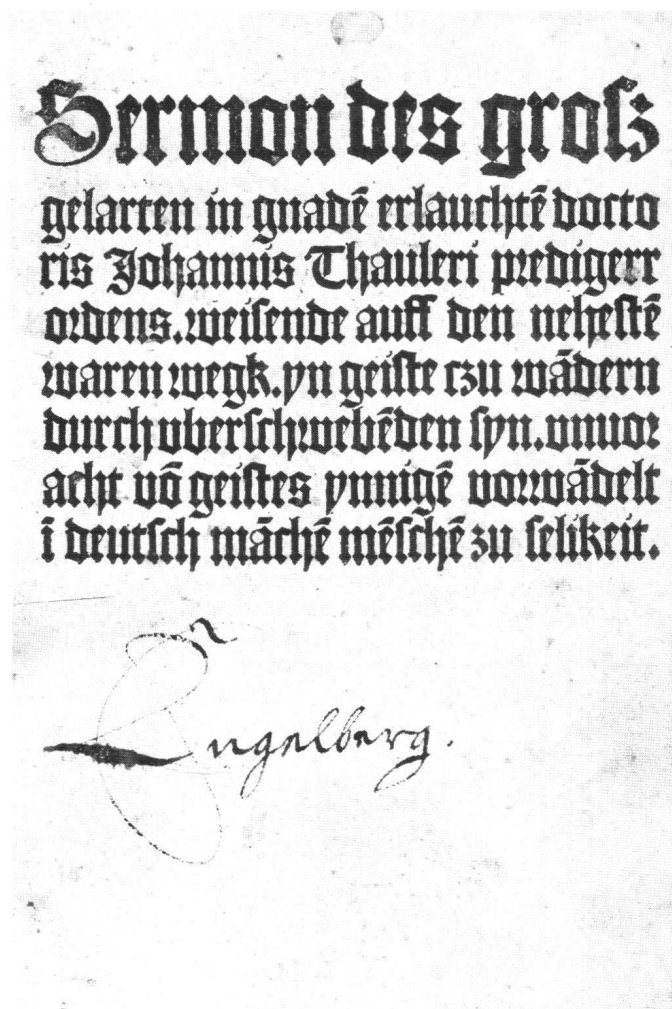 Sermon des groſz
gelarten in gnadē erlauchtē docto
ris Johannis Thauleri predigerr
ordens. weiſende auff den neheſtē
waren wegk. yn geiſte czu wādern
durch vberſchwebēden ſyn. vnuor
acht vō geiſtes ynnigē vorwādelt
ī deutſch māchē mēſchē zu ſelikeit.
Engelberg.